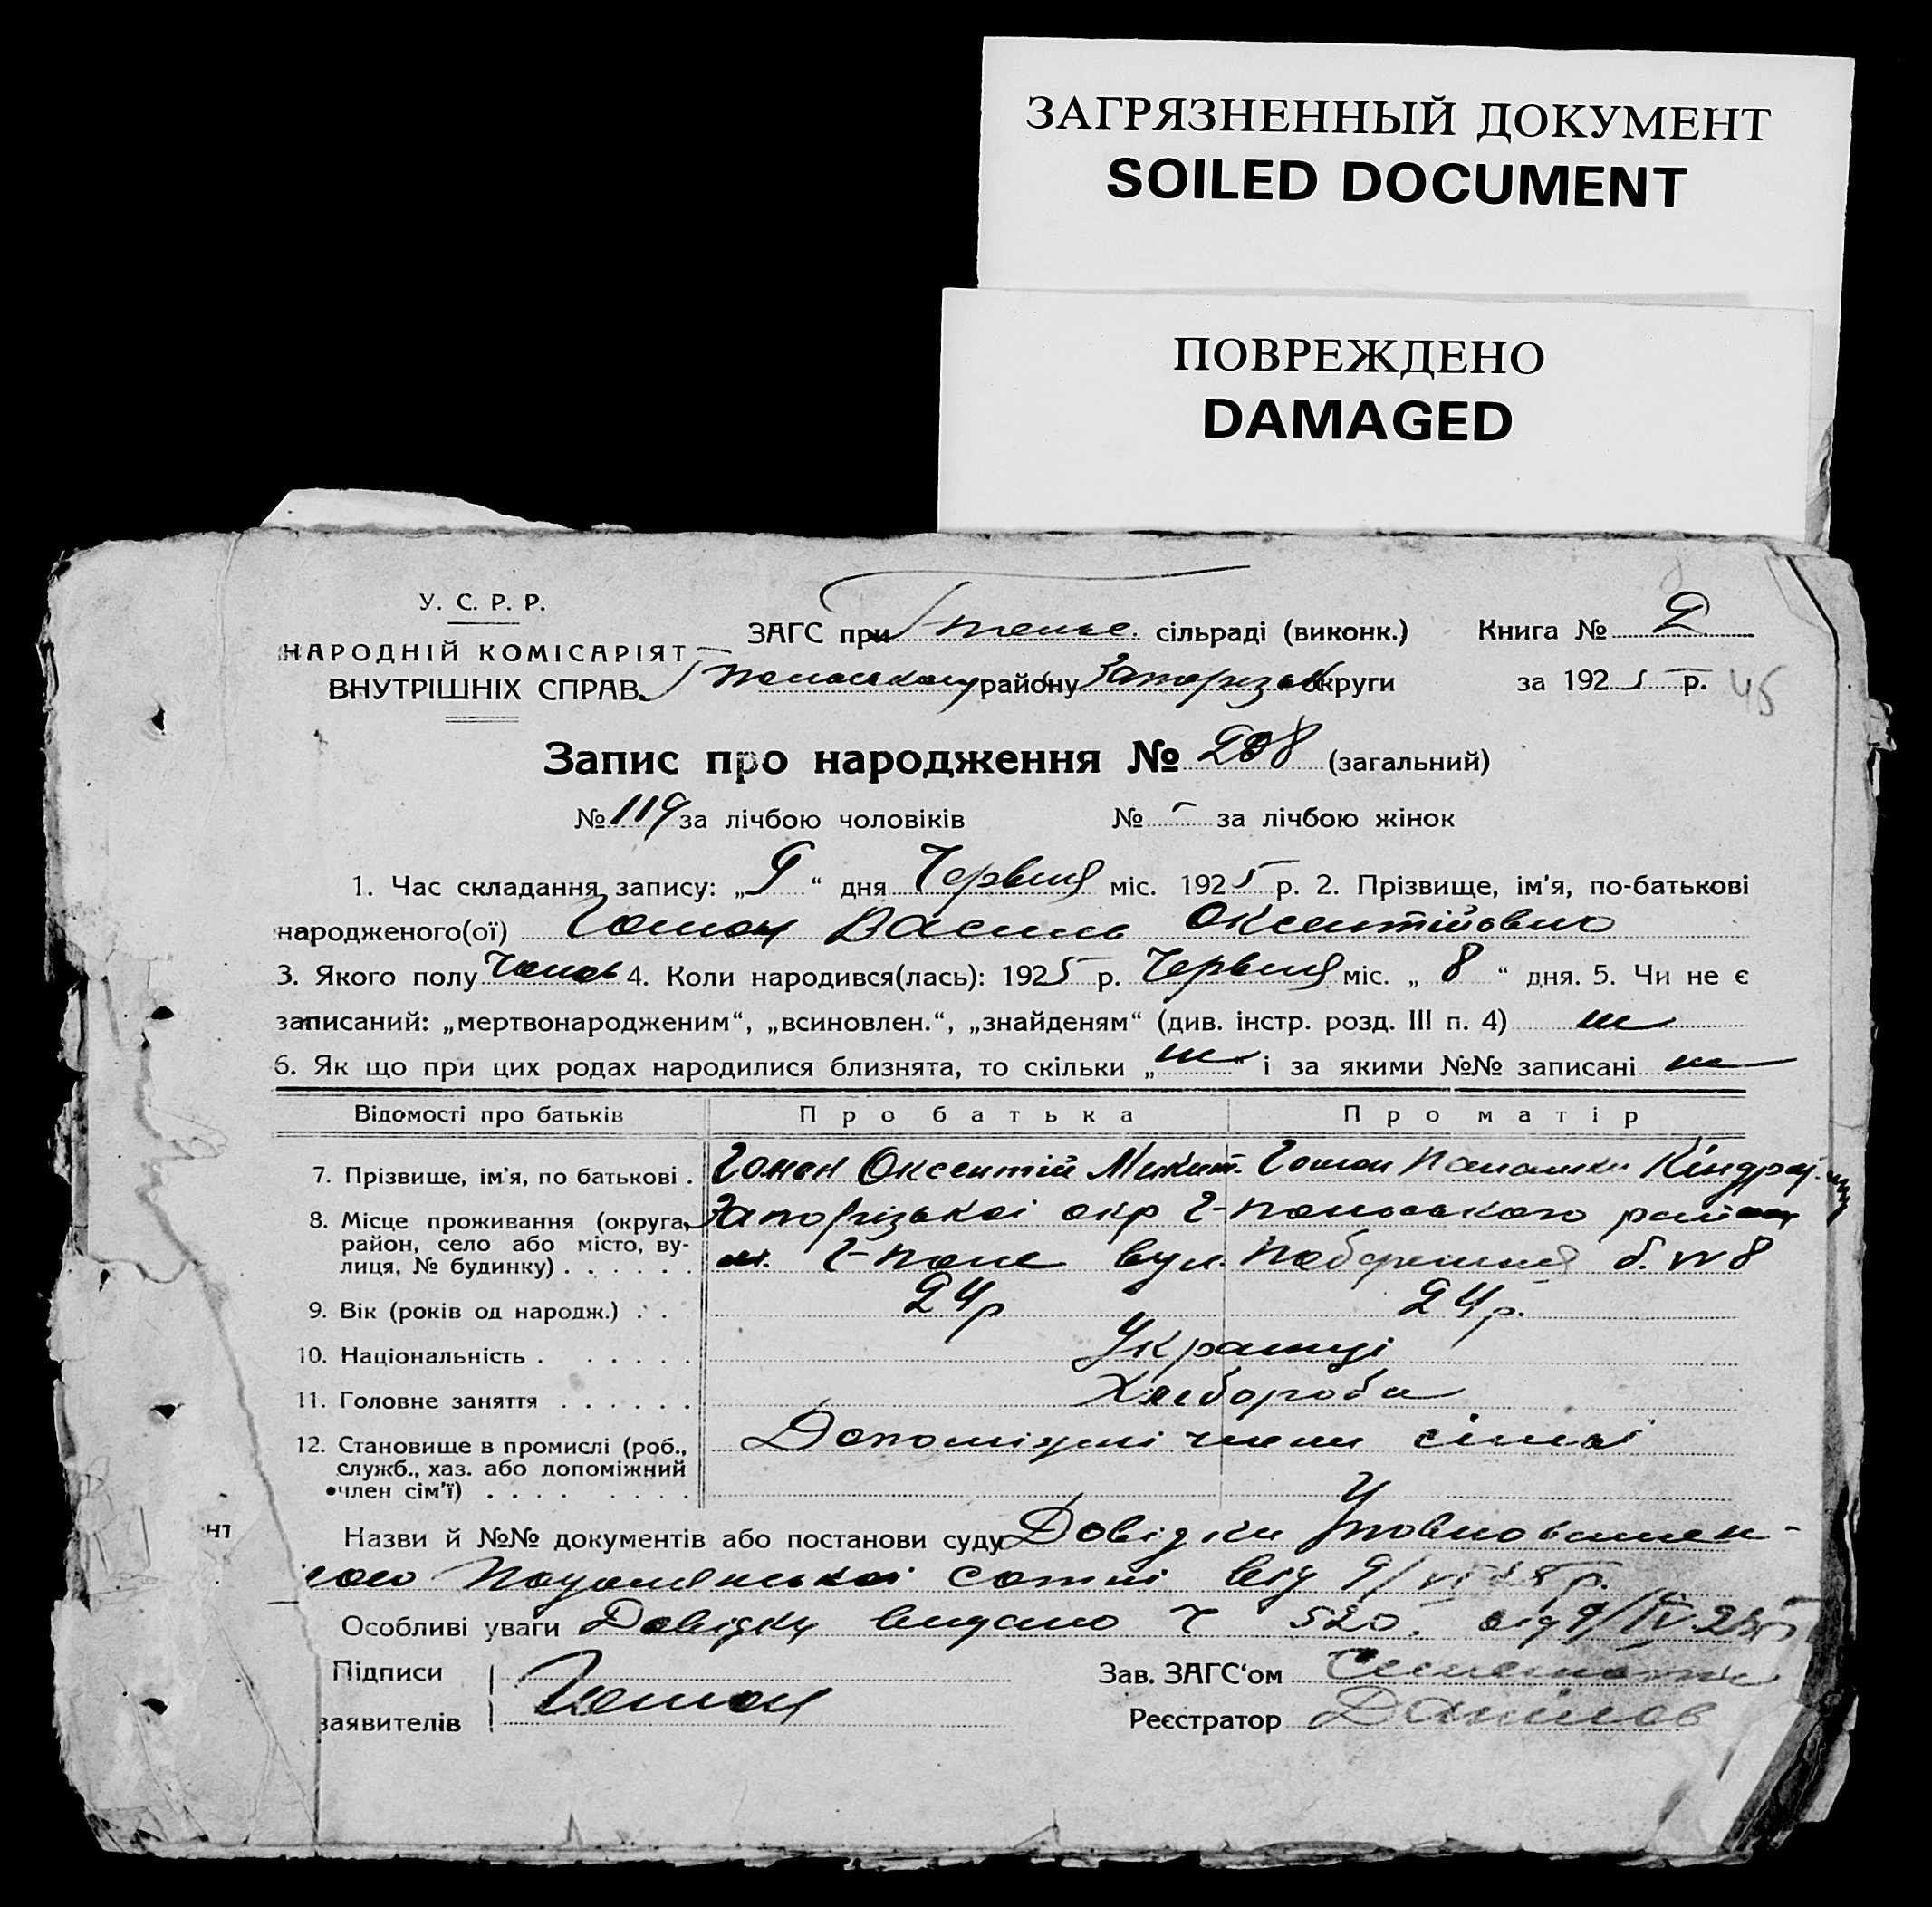 ЗАГРЯЗНЕННЫЙ ДОКУМЕНТ
SOILED DOCUMENT
ПОВРЕЖДЕНО
DAMAGED
У. С. Р. Р.
НАРОДНІЙ КОМІСАРІЯТ
ВНУТРІШНІХ СПРАВ
ЗАГС при сільраді (виконк.) Книга № 2
району Запорізьк округи за 1925 р. 45
Запис про народження № 208 (загальний)
№ 119 за лічбою чоловіків № - за лічбою жінок
1. Час складання запису: „9“ дня Червня міс. 1925 р. 2. Прізвище, ім'я, по-батькові
народженого(ої) Гоман Василь Оксентійович
3. Якого полу 4. Коли народився(лась): 1925 р. Червня міс. „8“ дня. 5. Чи не є
записаний: „мертвонародженим“, „всиновлен.“, „знайденям“ (див. інстр. розд. III п. 4) ні
6. Як що при цих родах народилися близнята, то скільки „ні“ і за якими №№ записані ні
Відомості про батьків Про батька Про матір
7. Прізвище, ім'я, по батькові . Гоман Оксентій Микит. Гоман Палажка Кіндрат.
8. Місце проживання (округа, район, село або місто, вулиця, № будинку) . . . . . . Запорізької окр Г-польського району
м. Г-поле вул. Набережна б. № 8
9. Вік (років од народж.) . . 24 р 24 р.
10. Національність . . . . . . Українці
11. Головне заняття . . . . . . Хлібороби
12. Становище в промислі (роб., служб., хаз. або допоміжний член сім'ї) . . . . Допоміжні члени сімї
Назви й №№ документів або постанови суду Довідки Уповноважен-
ого сотні від 9/VI 25 р.
Особливі уваги Довідку видано Ч 520. від
Підписи
заявителів Гоман
Зав. ЗАГС'ом
Реєстратор Данілов